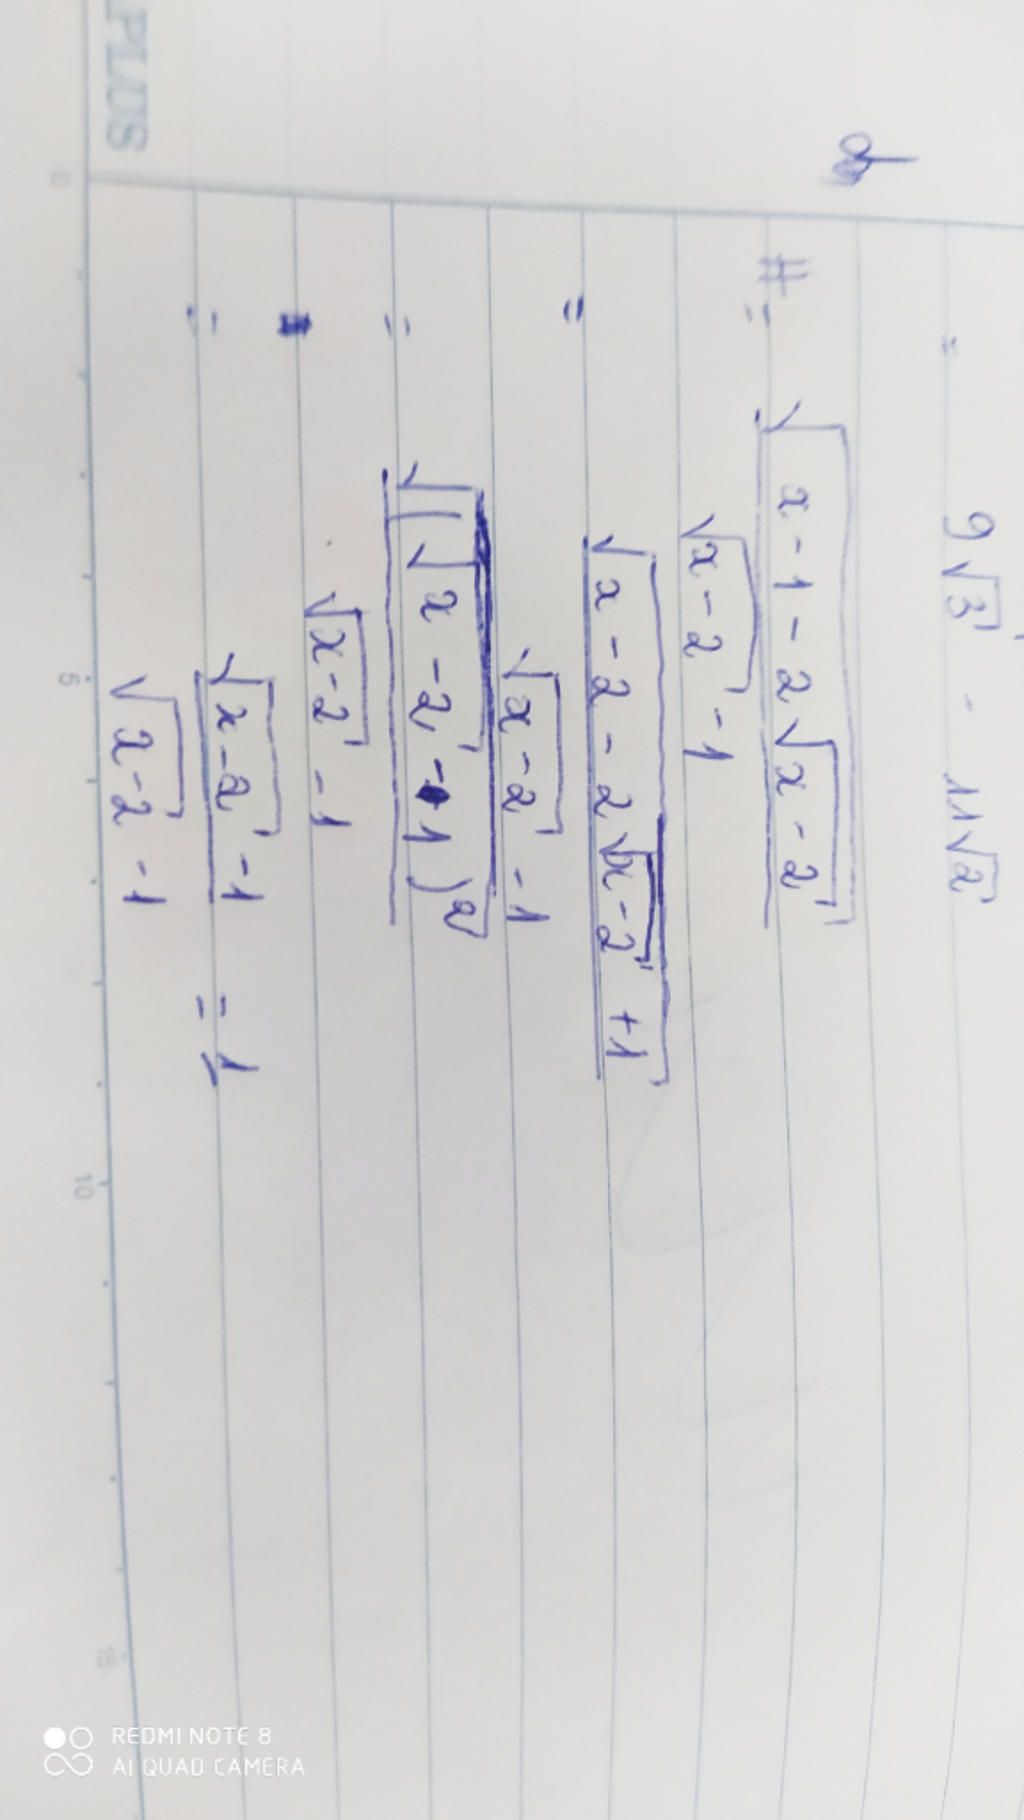 = 9√3 - 11√2
d)
# = √(x - 1 - 2√(x - 2))
√(x - 2) - 1
= √(x - 2 - 2√(x - 2) + 1)
√(x - 2) - 1
= √((√(x - 2) - 1)²)
√(x - 2) - 1
= √(x - 2) - 1 = 1
√(x - 2) - 1
PLUS
0 5 10 15
REDMI NOTE 8
AI QUAD CAMERA